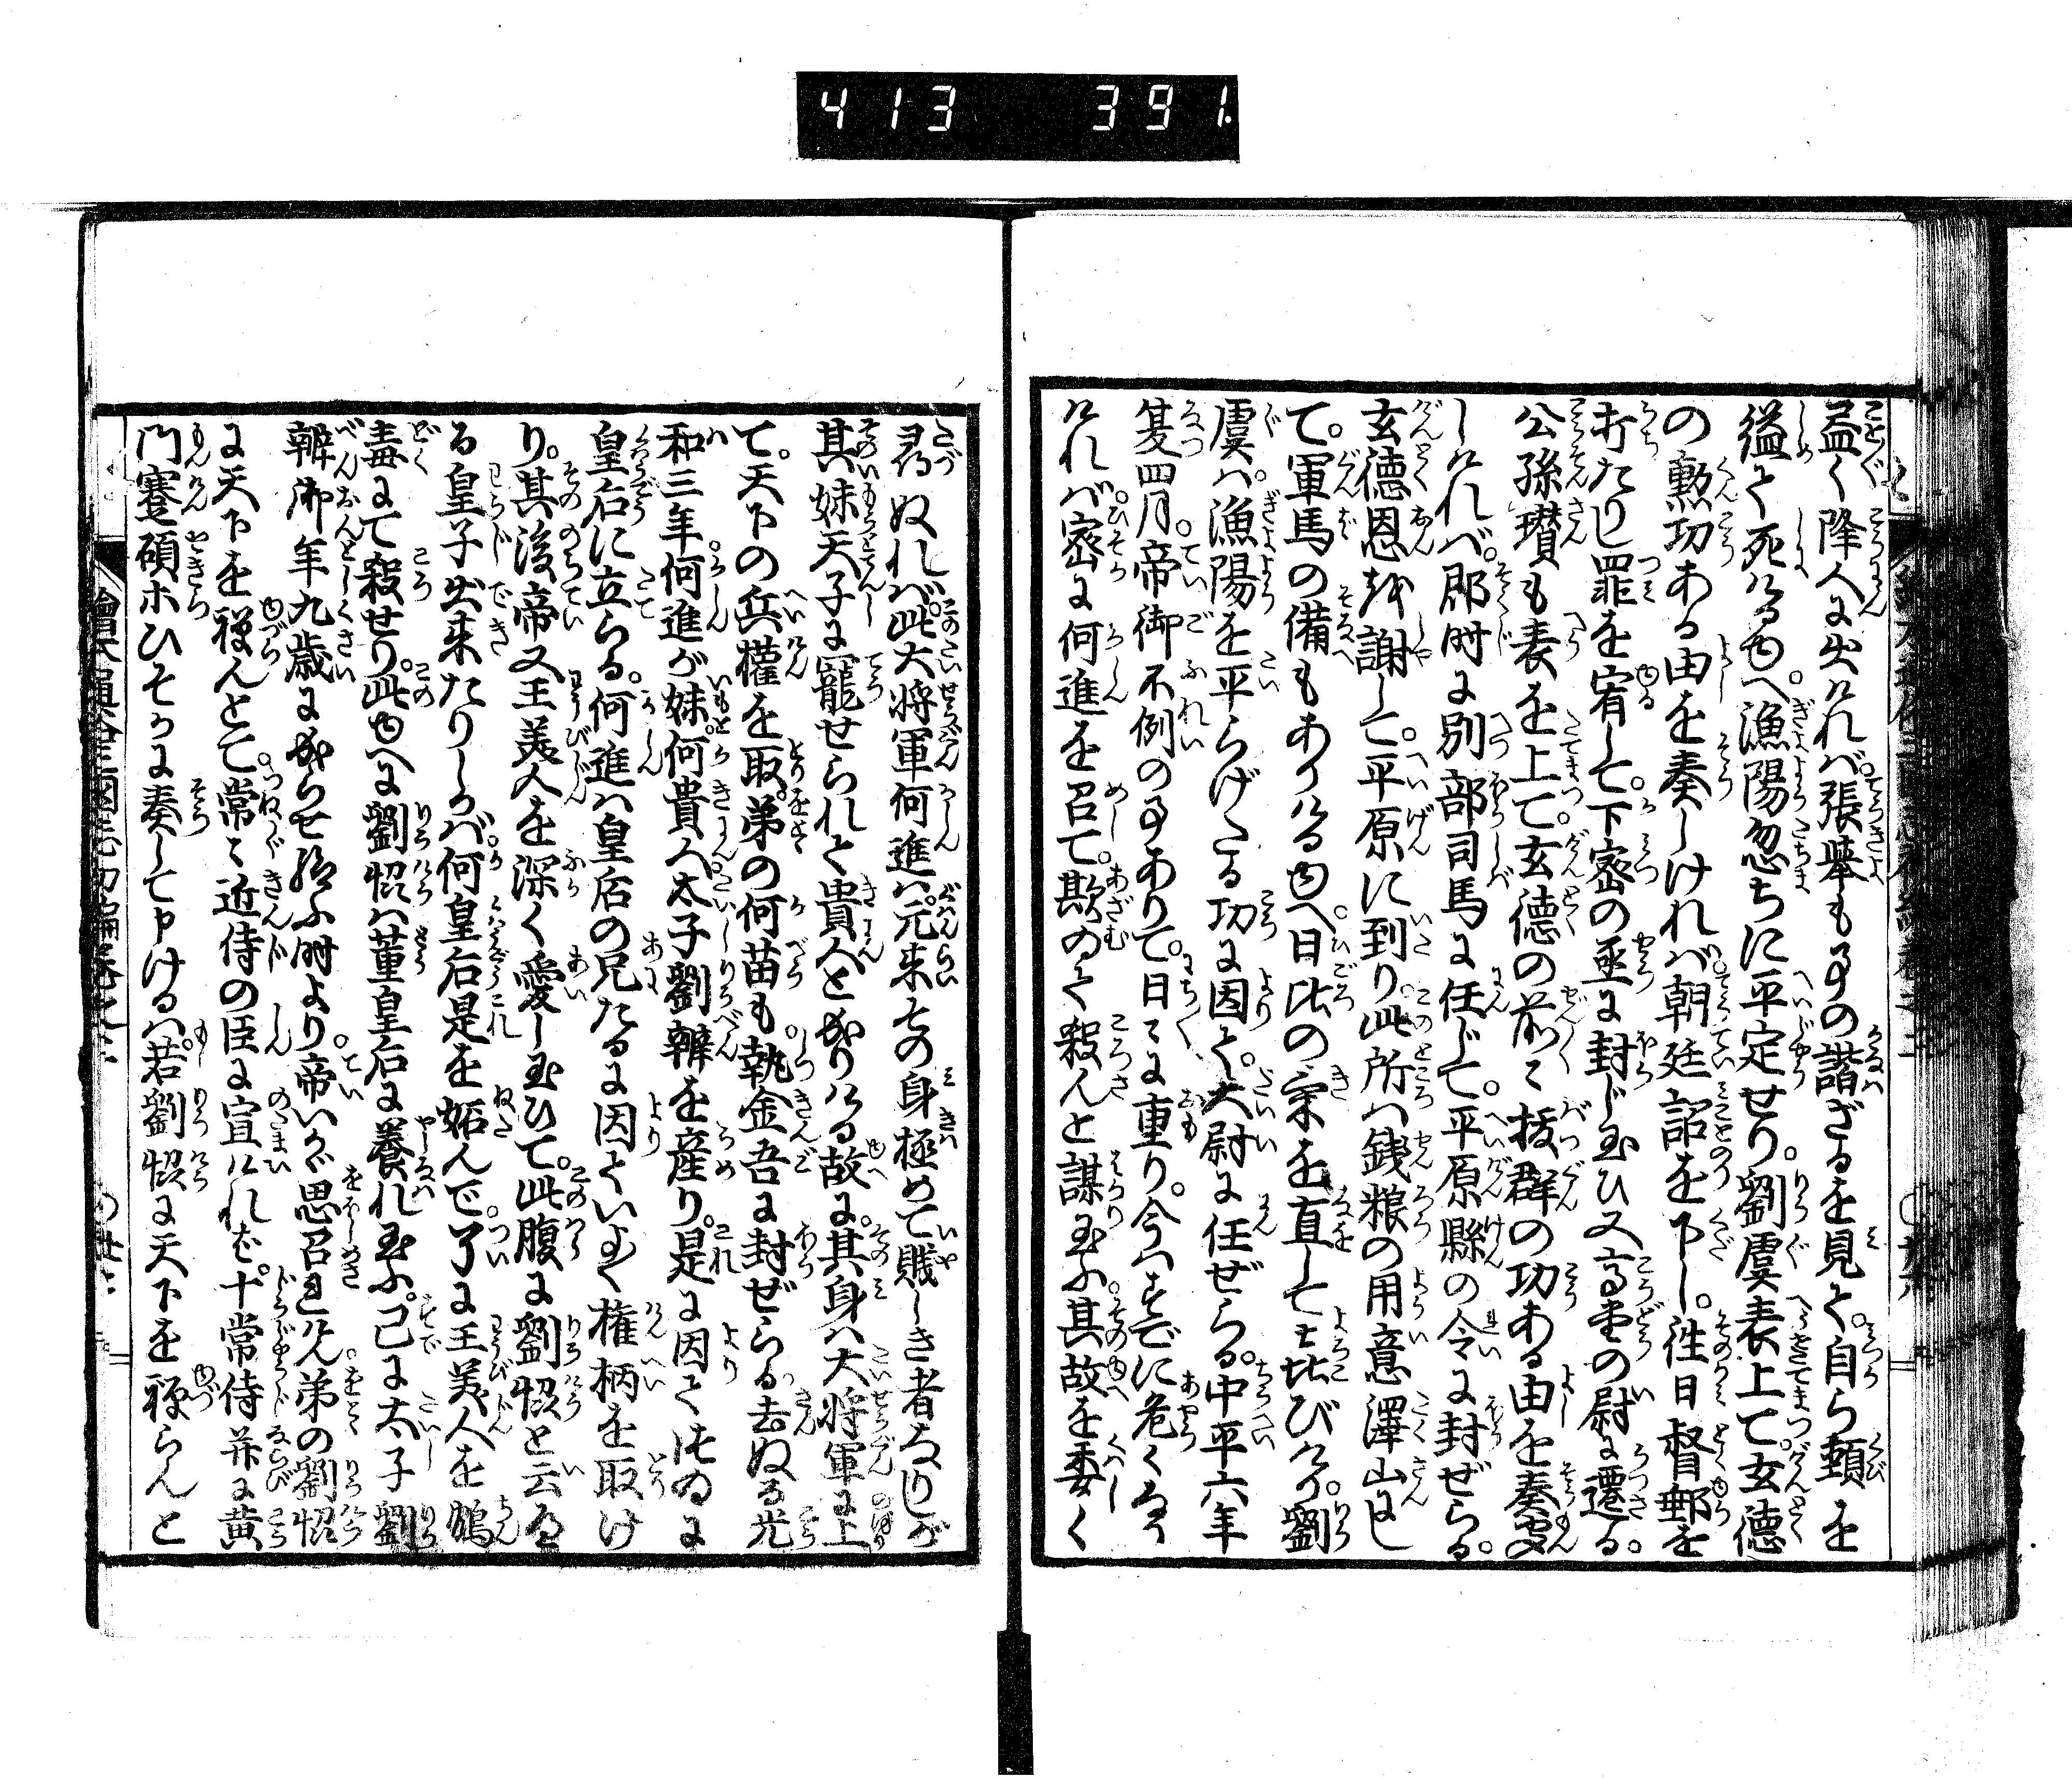 413 391.
盡く降人に出ければ。張擧も事の諧ざるを見て。自ら頸を
縊て死けるゆへ。漁陽忽ちに平定せり。劉虞表上て。玄德
の勲功ある由を奏しければ。朝廷詔を下し。徃日督郵を
打たりし罪を宥して。下密の丞に封じ玉ひ又高堂の尉に遷る。
公孫瓚も表を上て。玄德の前々拔群の功ある由を奏聞
しければ。郡時に別部司馬に任じて。平原縣の令に封ぜらる。
玄德恩を謝して。平原に到り。此所は銭粮の用意澤山にし
て。軍馬の備もありけるゆへ。日比の氣を直して喜びけり。劉
虞は。漁陽を平らげたる功に因て。大尉に任ぜらる。中平六年
夏四月。帝御不例の事ありて。日々に重り。今はすでに危くなり
ければ。密に何進を召て。欺のて殺んと謀玉ふ。其故を委く
尋ぬれば。此大将軍何進は。元来その身極めて賤しき者なりしが
其妹天子に寵せられて貴人と成りける故に。其身は大将軍に上
て。天下の兵權を取。弟の何苗も。執金吾に封ぜらる。去ぬる光
和三年。何進が妹。何貴人。太子劉辯を産り。是に因てつゐに
皇后に立らる。何進は皇后の兄たるに因ていよ〳〵權柄を取け
り。其後帝又王美人を深く愛し玉ひて。此腹に劉恊と云る
る皇子出来たりしかば。何皇后是を妬んで。了に王美人を鴆
毒にて殺せり。此ゆへに劉恊は董皇后に養れ玉ふ。已に太子劉
辯御年九歳に成らせ給ふ時より。帝いかゞ思召されけん。弟の劉恊
に天下を禪んとて。常々近侍の臣に宣ければ。十常侍并に黄
門蹇碩等ひそかに奏して申けるは。若劉恊に天下を禪らんと